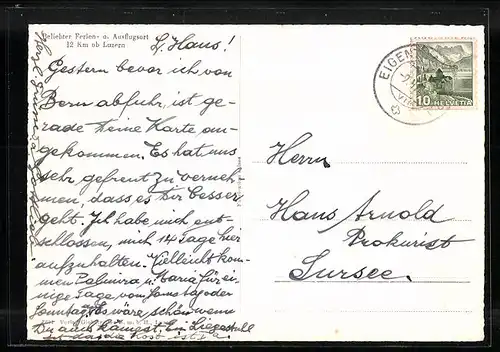 Beliebter Ferien- u. Ausflugsort
12 Km ob Luzern
L. Hans!
Gestern bevor ich von
Bern abfuhr, ist ge-
rade Deine Karte an-
gekommen. Es hat uns
sehr gefreut zu verneh-
men, dass es Dir besser
geht. Ich habe mich ent-
schlossen, mich 14 Tage hier
aufzuhalten. Vielleicht kom-
men Palmira u. Maria für ei-
nige Tage vom Samstag oder
Sonntag an. Es wäre schön wenn
Du auch kämest. Ein Liegestuhl
Herrn
Hans Arnold
Prokurist
Sursee.
EIGEN
10 HELVETIA